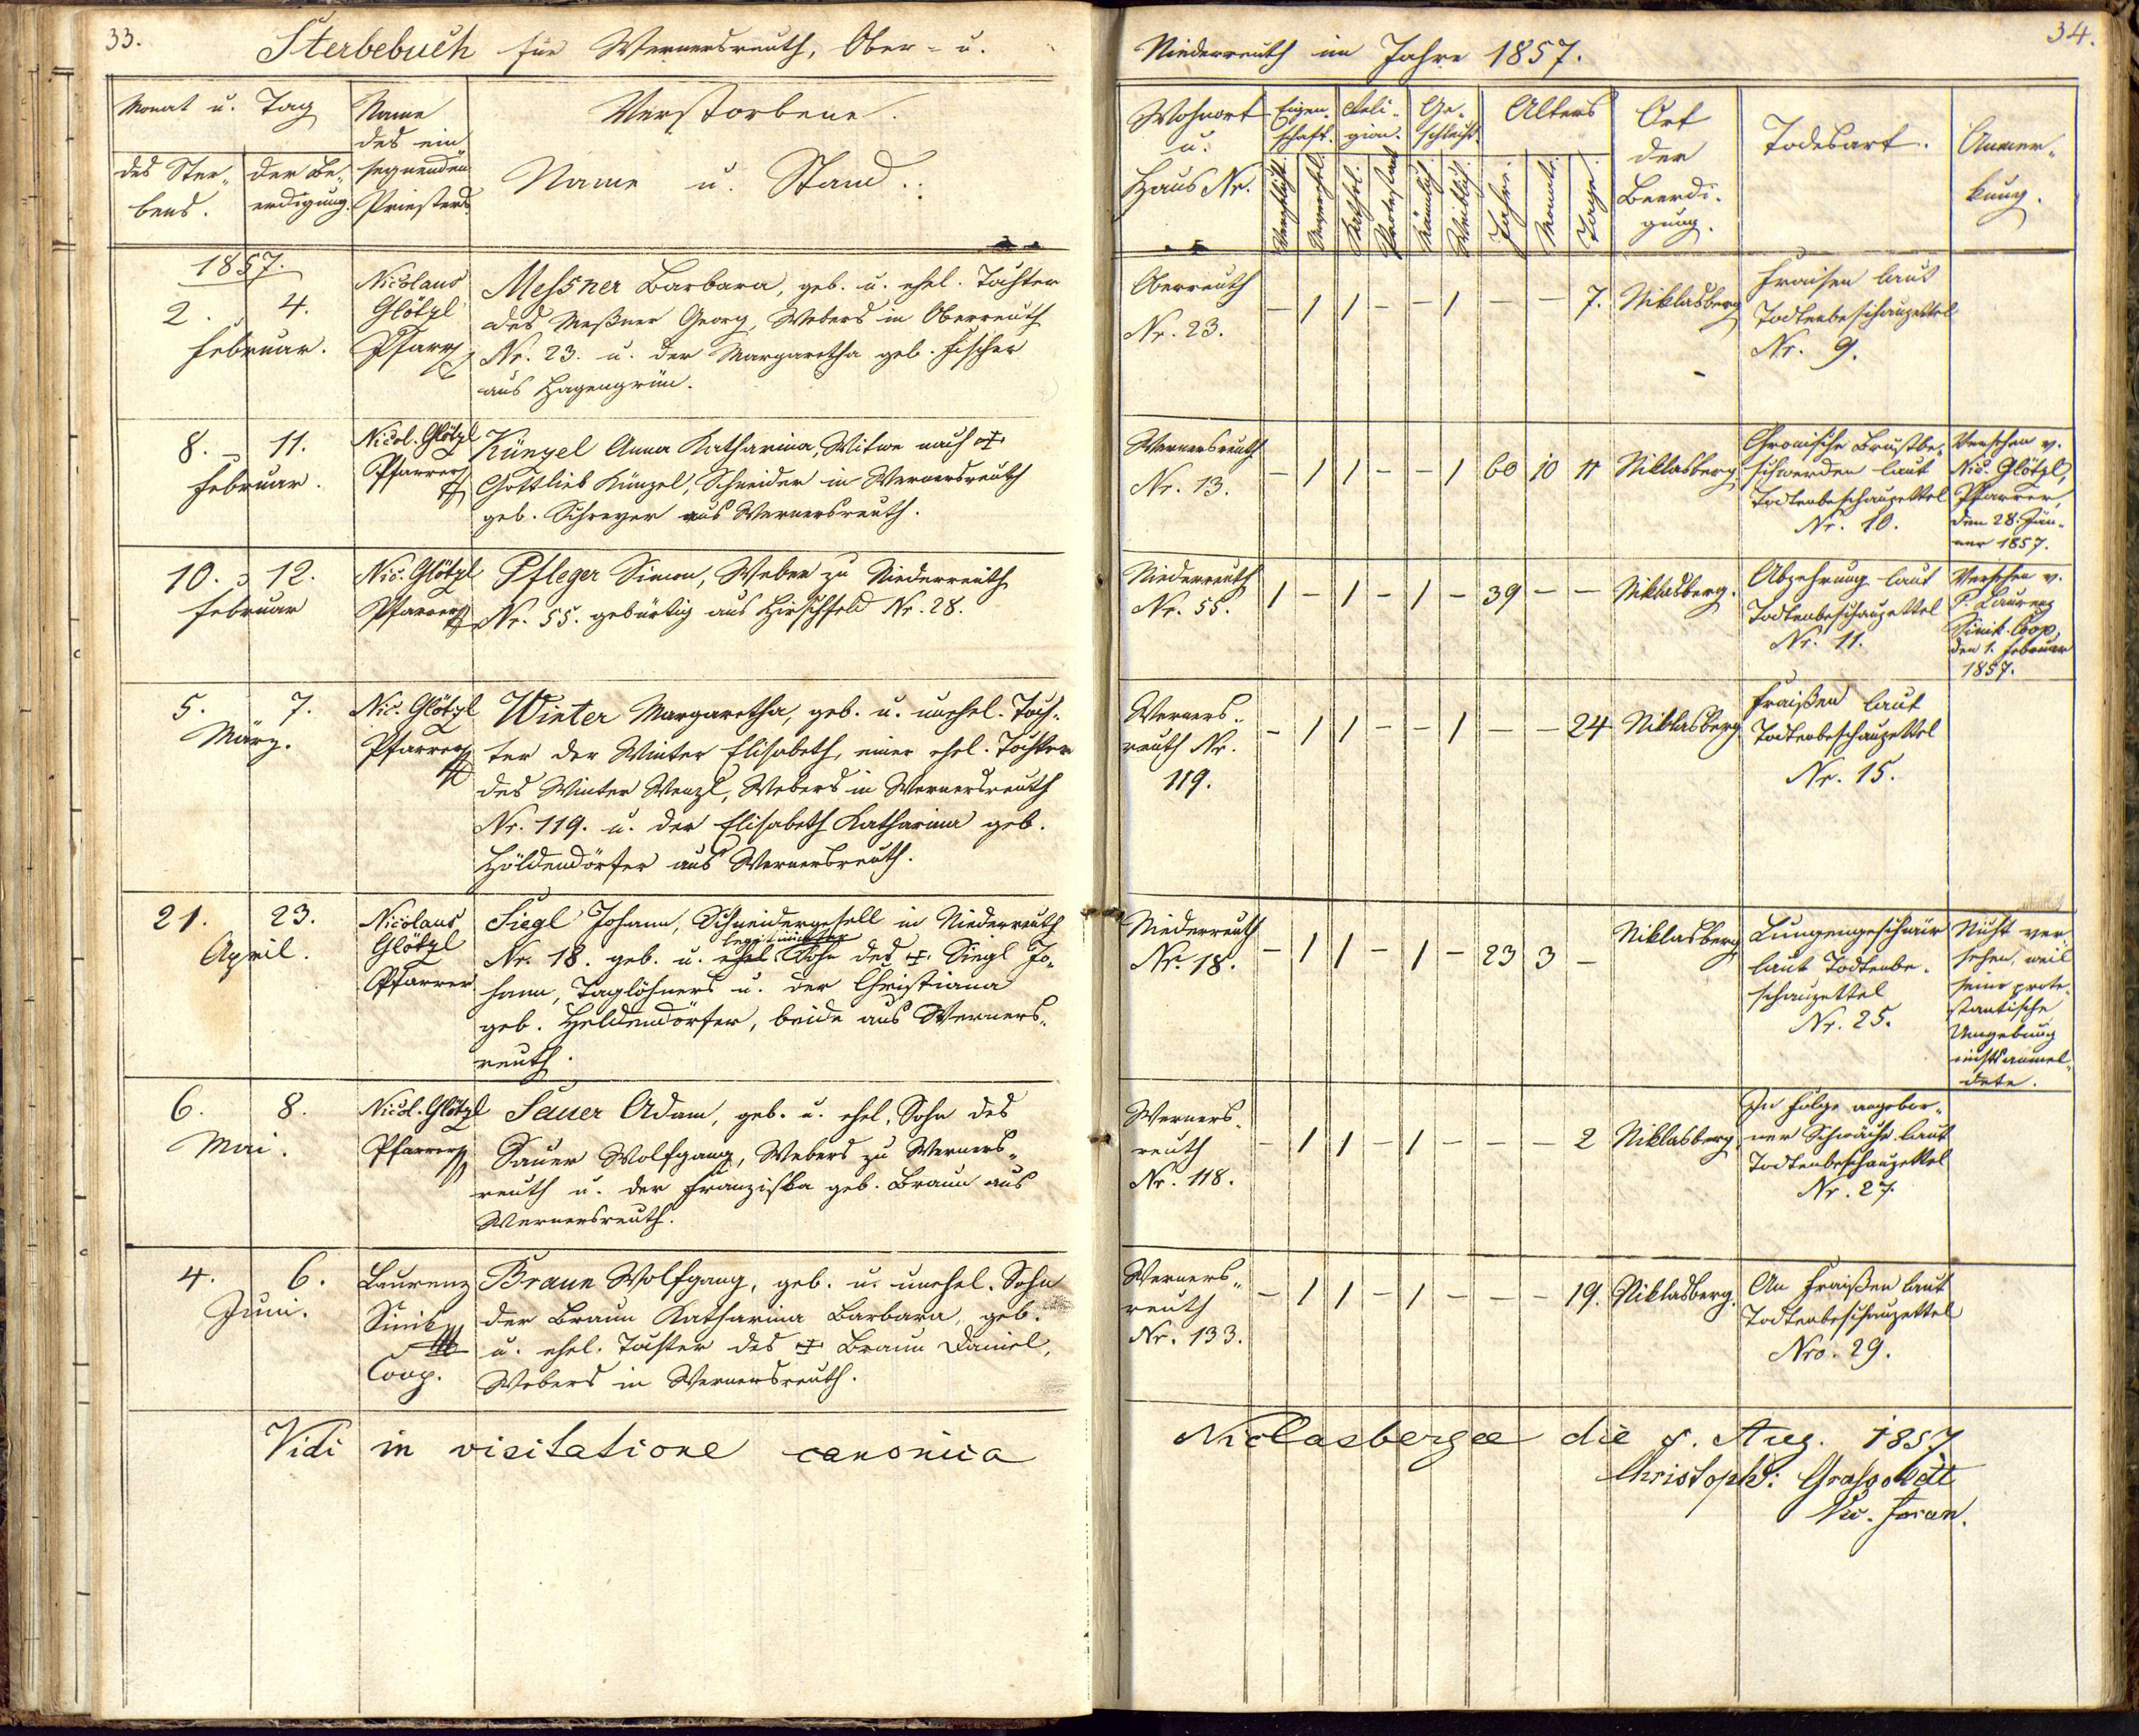 33.
Sterbebuch für Wernersreuth, Ober- u.
Monat u. Tag
des Ster-
bens.
der Be-
erdigung.
Name
des ein-
segnenden
Priesters
Verstorbene.
Name u. Stand.
1857.
2. 4.
Februar.
Nicolaus
Glötzl
Pfarrer
Messner Barbara, geb. u. ehel. Tochter
des Meßner Georg, Webers in Oberreuth
Nr. 23. u. der Margaretha geb. Fischer
aus Hagengrün.
8. 11.
Februar.
Nicol. Glötzl
Pfarrer
Künzel Anna Katharina, Witwe nach ✝
Gottlieb Künzel, Schneider in Wernersreuth
geb. Schreyer aus Wernersreuth.
10. 12.
Februar
Nic. Glötzl
Pfarrer
Pfleger Simon, Weber zu Niederreuth
Nr. 55. gebürtig aus Hirschfeld Nr. 28.
5. 7.
März.
Nic. Glötzl
Pfarrer
Winter Margaretha, geb. u. unehel. Toch-
ter der Winter Elisabeth, einer ehel. Tochter
des Winter Wenzl, Webers in Wernersreuth
Nr. 119. u. der Elisabeth Katharina geb.
Höldendörfer aus Wernersreuth.
21. 23.
April.
Nicolaus
Glötzl
Pfarrer
Siegl Johann, Schneidergesell in Niederreuth
legitimirter
Nr. 18. geb. u. ehel. Sohn des ✝ Siegl Jo-
hann, Taglöhners u. der Christiana
geb. Heldendörfer, beide aus Werners-
reuth.
6. 8.
Mai.
Nicol. Glötzl
Pfarrer
Sauer Adam, geb. u. ehel. Sohn des
Sauer Wolfgang, Webers zu Werners-
reuth u. der Franziska geb. Braun aus
Wernersreuth.
4. 6.
Juni.
Laurenz
Sinik
Coop.
Braun Wolfgang, geb. u. unehel. Sohn
der Braun Katharina Barbara, geb.
u. ehel. Tochter des ✝ Braun Daniel,
Webers in Wernersreuth.
Vidi in visitatione canonica
34.
Niederreuth im Jahre 1857.
Wohnort
u.
Haus Nr.
Eigen-
schaft.
Verehlicht.
Unverehel.
Reli-
gion.
Kathol.
Protestant
Ge-
schlecht.
Männlich.
Weiblich.
Alters
Jahre.
Monate.
Tage.
Ort
der
Beerdi-
gung.
Todesart.
Anmer-
kung.
Oberreuth
Nr. 23.
- 1 1 - - 1 - - 7. Niklasberg
Fraisen laut
Todtenbeschauzettel
Nr. 9.
Wernersreuth
Nr. 13.
- 1 1 - - 1 60 10 11 Niklasberg
Chronische Brustbe-
schwerden laut
Todtenbeschauzettel
Nr. 10.
Versehen v.
Nic. Glötzl,
Pfarrer,
den 28. Jän-
ner 1857.
Niederreuth
Nr. 55.
1 - 1 - 1 - 39 - - Niklasberg.
Abzehrung laut
Todtenbeschauzettel
Nr. 11.
Versehen v.
P. Laurenz
Sinik Coop,
den 1. Februar
1857.
Werners-
reuth Nr.
119.
- 1 1 - - 1 - - 24 Niklasberg
Fraißen laut
Todtenbeschauzettel
Nr. 15.
Niederreuth
Nr. 18.
- 1 1 - 1 - 23 3 - Niklasberg
Lungengeschwür
laut Todtenbe-
schauzettel
Nr. 25.
Nicht ver-
sehen, weil
seine prote-
stantische
Umgebung
nichts anmel-
dete.
Werners-
reuth
Nr. 118.
- 1 1 - 1 - - - 2 Niklasberg.
In Folge angebor-
ner Schwäche laut
Todtenbeschauzettel
Nr. 27.
Werners-
reuth
Nr. 133.
- 1 1 - 1 - - - 19. Niklasberg.
An Fraißen laut
Todtenbeschauzettel
Nro. 29.
Niclasbergae die 5. Aug. 1857
Christoph: